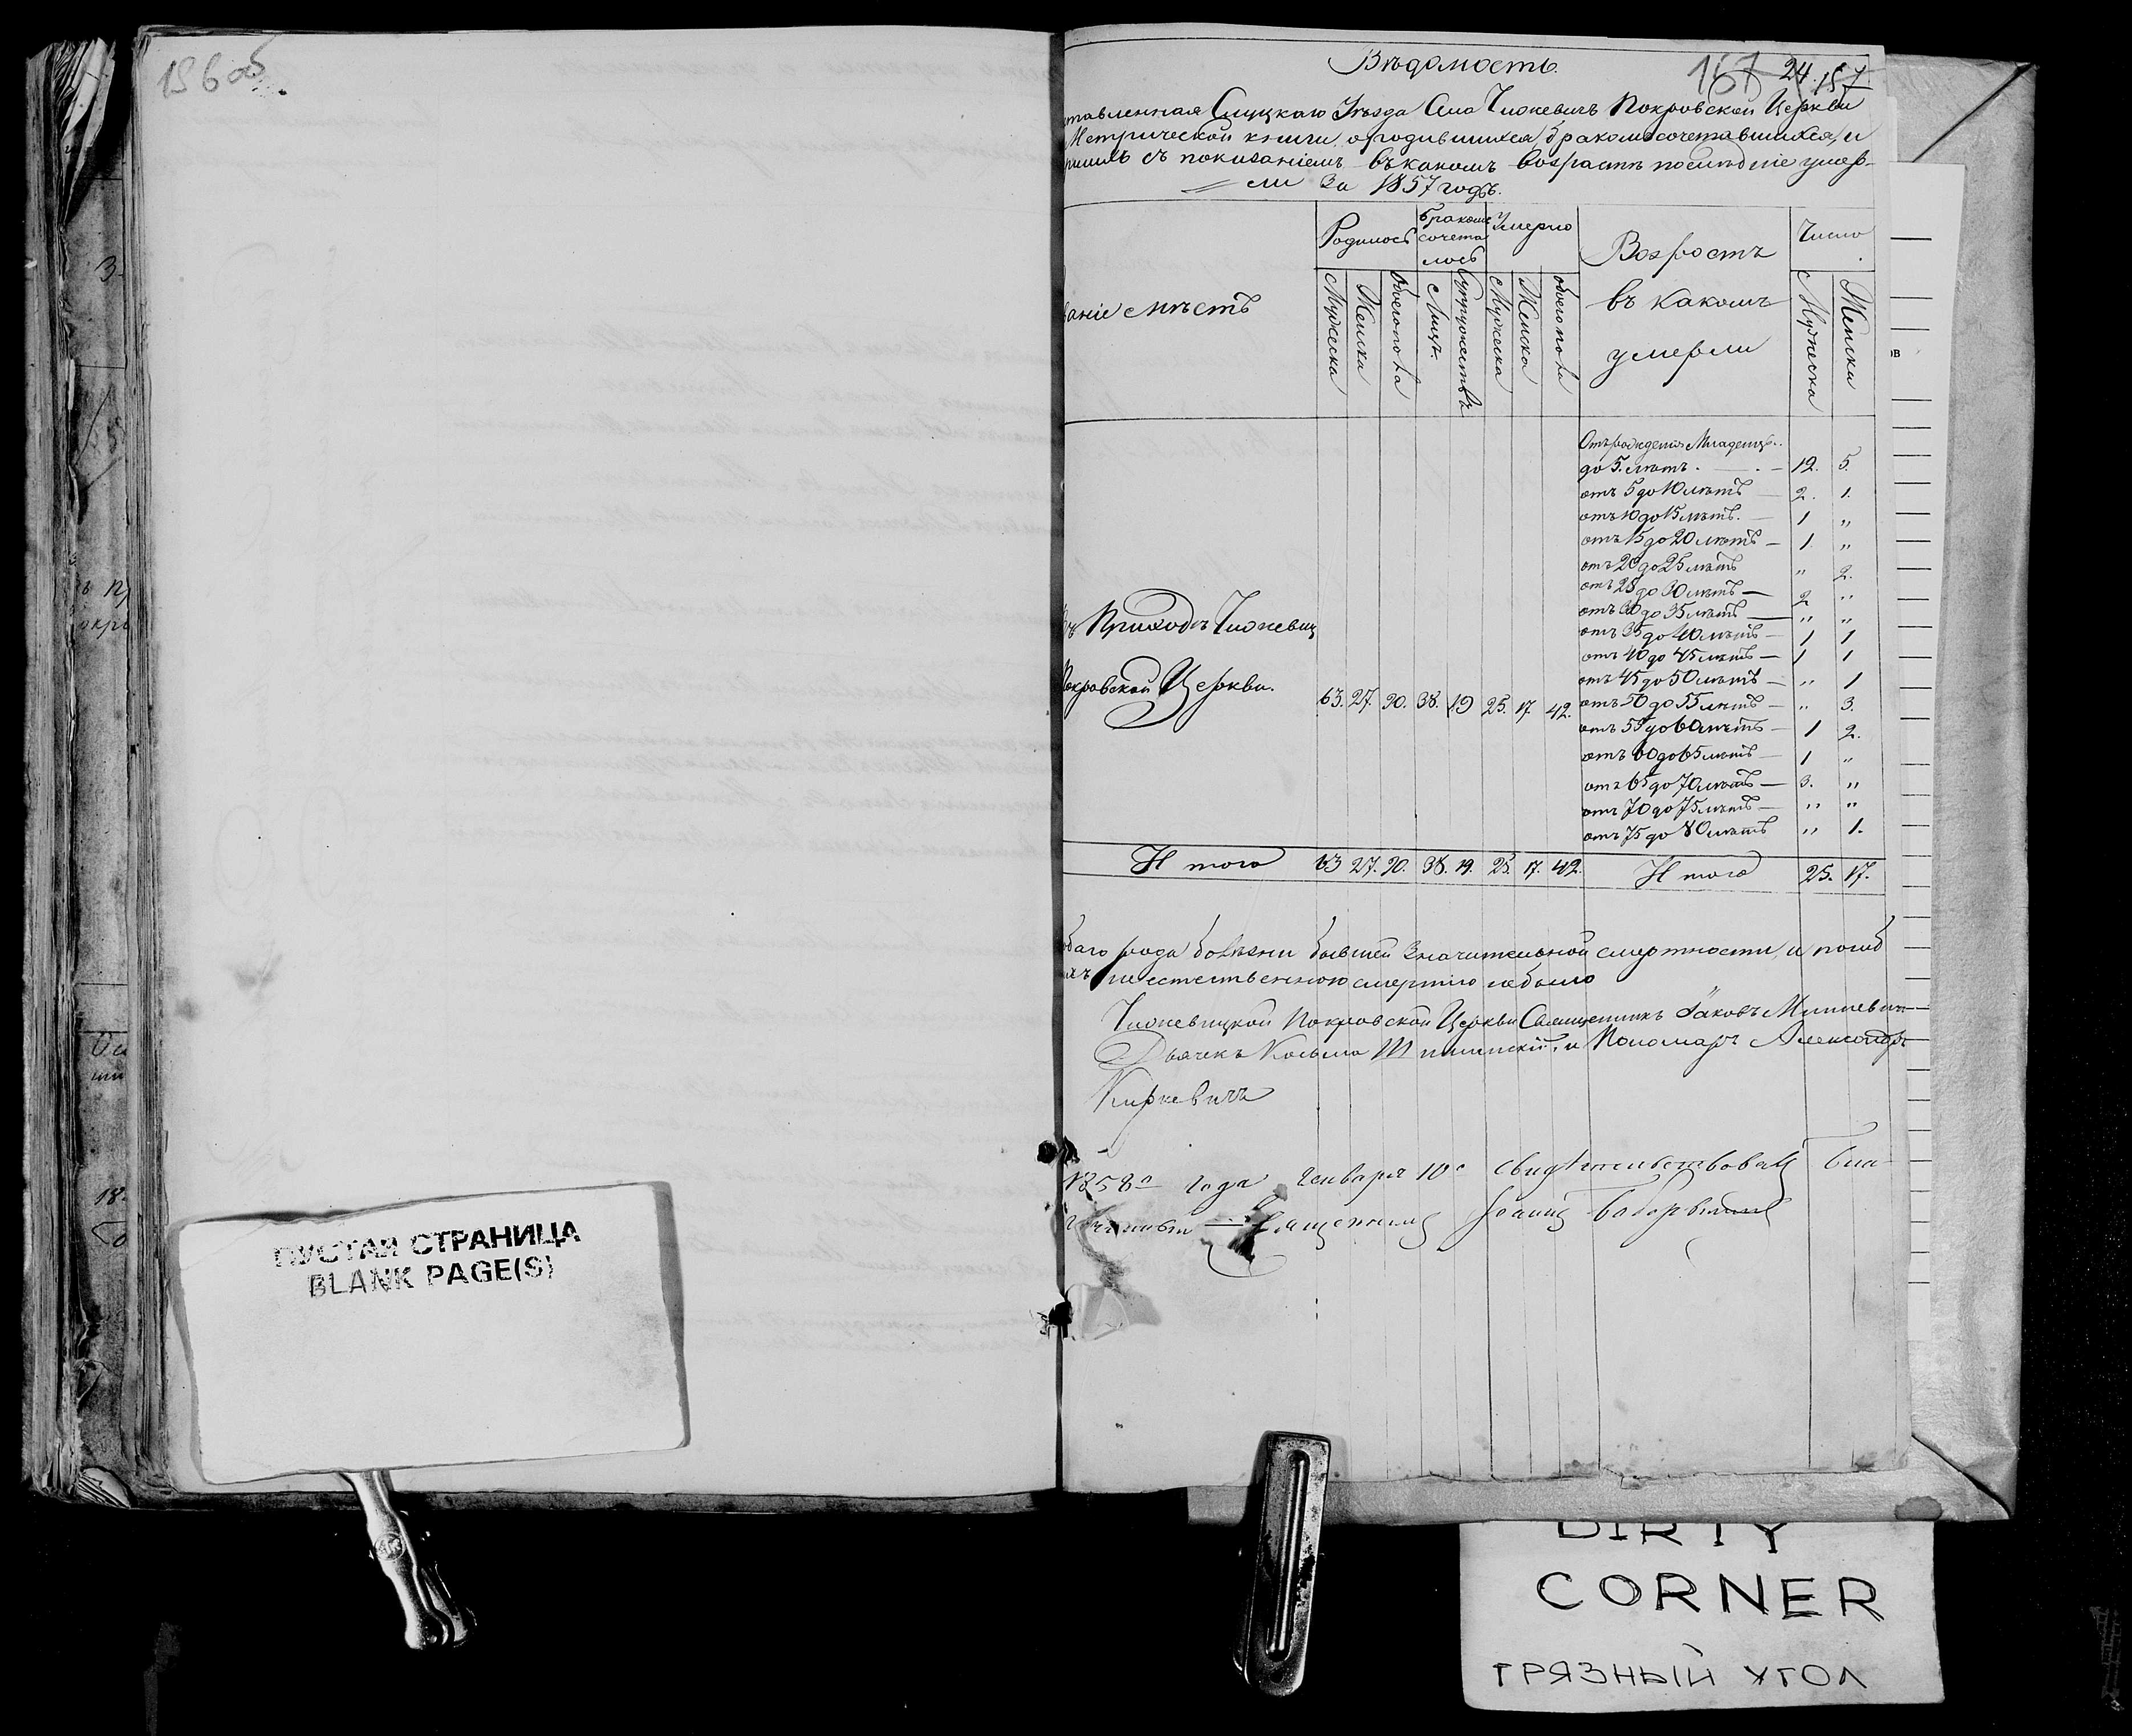 156об.
ПУСТАЯ СТРАНИЦА
BLANK PAGE(S)
Вѣдомость.
157 24. 157
ставленная Слуцкаго Уѣзда Села Чижевичъ Покровской Церкви
Метрической книги, о родившихся, бракомъ сочетавшихся, и
съ показаніемъ въ какомъ возрастѣ послѣдніе умер-
ли За 1857 годъ.
ваніе мѣстъ
Родилось
бракомъ
сочета
лось
Умерло
Возрастъ
въ какомъ
умерли
Число
Мужеска
Женска
обоего пола
Лицъ
Супружествъ
Мужеска
Женска
обоего пола
Мужеска
Женска
Отъ рожденія Младенц..
до 5. лѣтъ. — 12. 5.
отъ 5 до 10 лѣтъ — 2. 1.
отъ 10 до 15 лѣтъ. — 1 „
отъ 15 до 20 лѣтъ — 1. „
отъ 20 до 25 лѣтъ „ 2.
отъ 25 до 30 лѣтъ — 2 „
отъ 30 до 35 лѣтъ — „ „
отъ 35 до 40 лѣтъ — 1 1
отъ 40 до 45 лѣтъ — 1 1
отъ 45 до 50 лѣтъ — „ 1
отъ 50 до 55 лѣтъ — „ 3.
отъ 55 до 60 лѣтъ — 1 2.
отъ 60 до 65 лѣтъ — 1 „
отъ 65 до 70 лѣтъ — 3. „
отъ 70 до 75 лѣтъ — „ „
отъ 75 до 80 лѣтъ „ 1.
ъ Приходѣ Чижевиц
Покровской Церкви.
63. 27. 90. 38. 19 25. 17. 42.
Итого 63 27. 90. 38. 19. 25. 17. 42. Итого 25. 17.
баго рода болѣзни бывшей значительной смертности, и погиб
хъ неестественною смертію небыло
Чижевицкой Покровской Церкви Священникъ Іаковъ Минкевич
Дьячекъ Косьма и Пономарь Александръ
Киркевичъ
1858го года Генваря 10го свидѣтельствовалъ Бла-
гочинный Священникъ Іоаннъ
DIRTY
CORNER
ГРЯЗНЫЙ УГОЛ